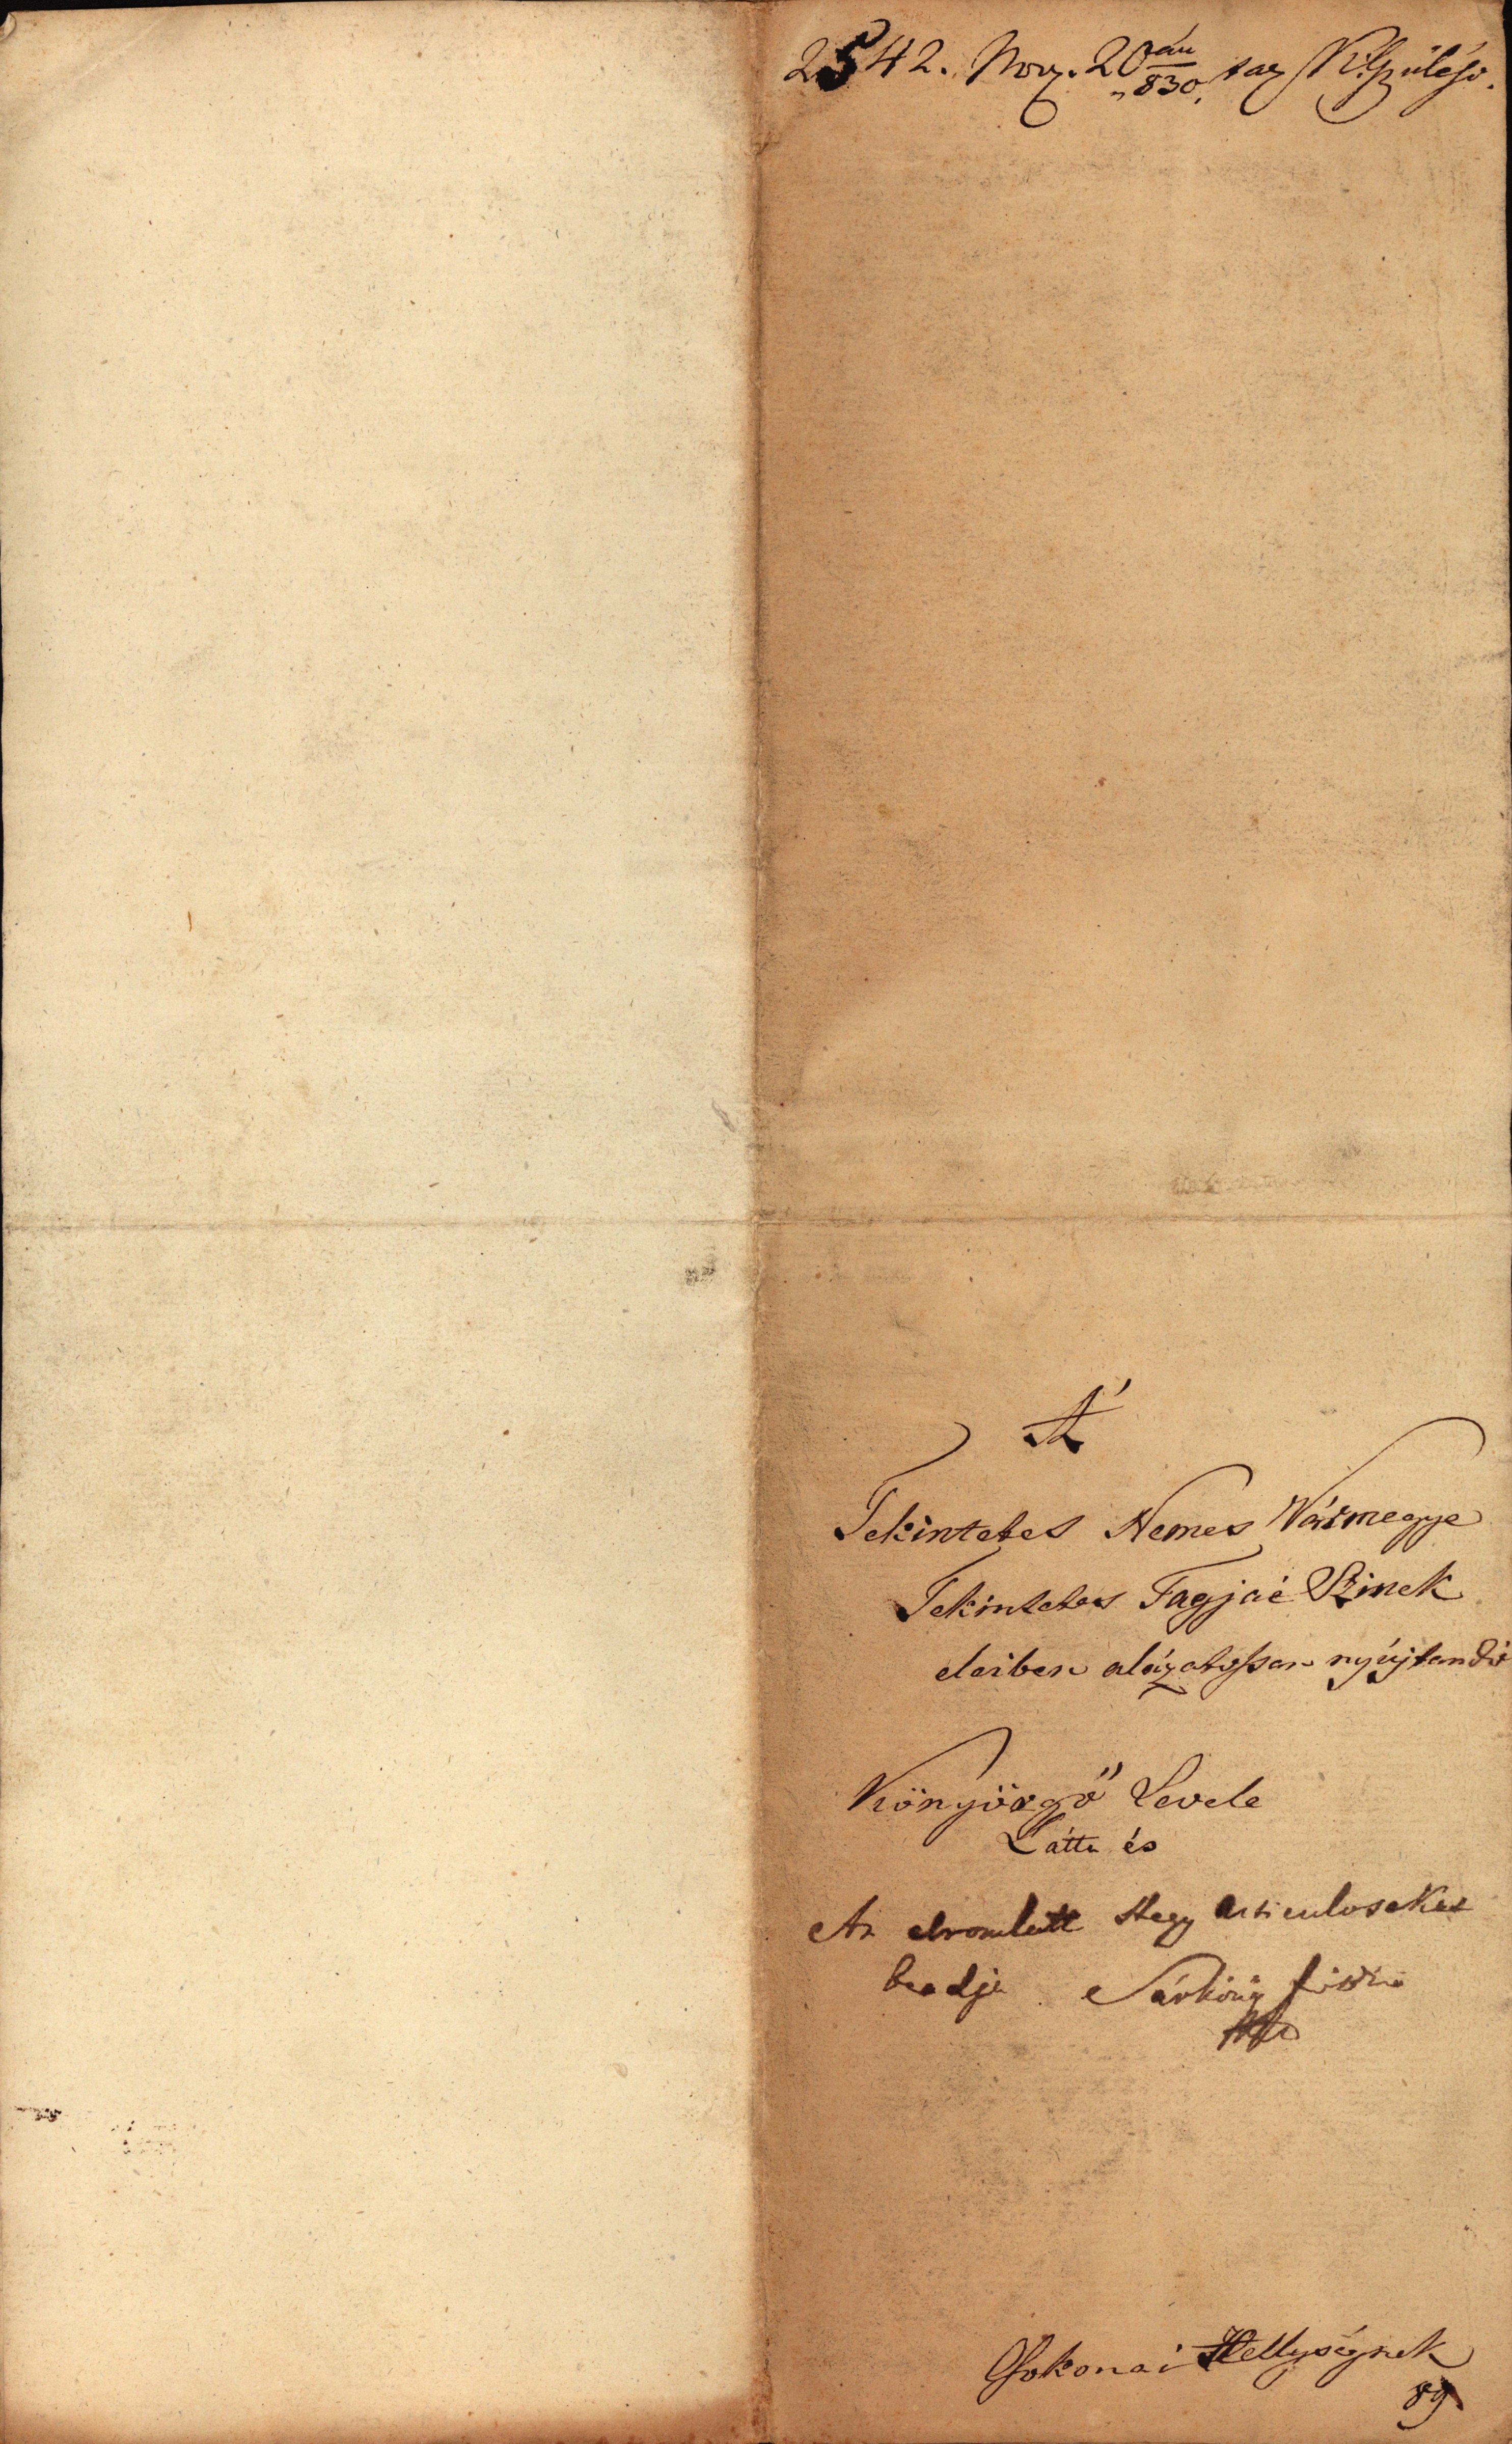 2542. Nov. 20án 830. tar. Kis Gyűlésb.
Á
Tekintetes Nemes Vármegye
Tekintetes Tagjai Szinek
eleiben alázatossan nyújtandó
Könyörgő Levele
Látta és
Az elromlott Hegy Articulusokat
beadja Sárközy
Csokonai Hellységnek
89